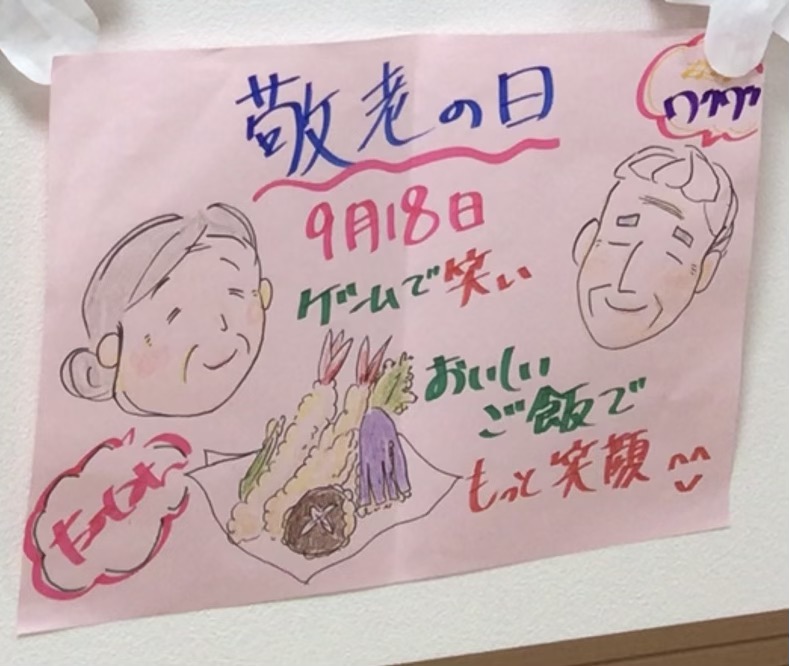 敬老の日
ワクワク
9月18日
ゲームで笑い
おいしい
ご飯で
もっと笑顔